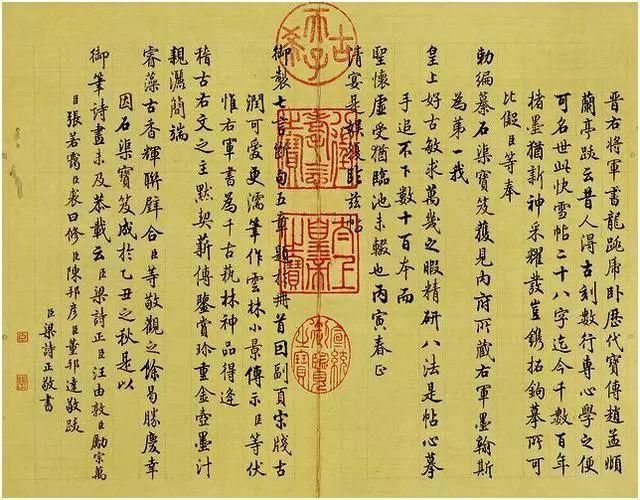 晋右將軍書龍跳虎卧歷代寶傳趙孟頫
蘭亭跋云昔人得古刻數行專心學之便
可名世此快雪帖二十八字迄今千數百年
楮墨猶新神采耀發豈鐫拓鉤摹所可
比儗臣等奉
勅編纂石渠寶笈獲見内府所藏右軍墨翰斯
為第一我
皇上好古敏求萬幾之暇精研八法是帖心摹
手追不下數十百本而
聖懷虛受猶臨池未輟也丙寅春正
清宴是娱復臨兹帖
御製七言斷句五章題於冊首因副頁宋牋古
潤可愛更濡筆作雲林小景傳示臣等伏
惟右軍書為千古埶林神品得逢
稽古右文之主默契薪傳鑒賞珍重金壺墨汁
親灑簡端
睿藻古香輝聯璧合臣等敬觀之餘曷勝慶幸
因石渠寶笈成於乙丑之秋是以
御筆詩畫未及恭載云臣梁詩正臣汪由敦臣勵宗萬
臣張若靄臣裘曰修臣陳邦彦臣董邦達敬跋
臣梁詩正敬書
古希天子
太上皇帝之寶
宣統御覽之寶